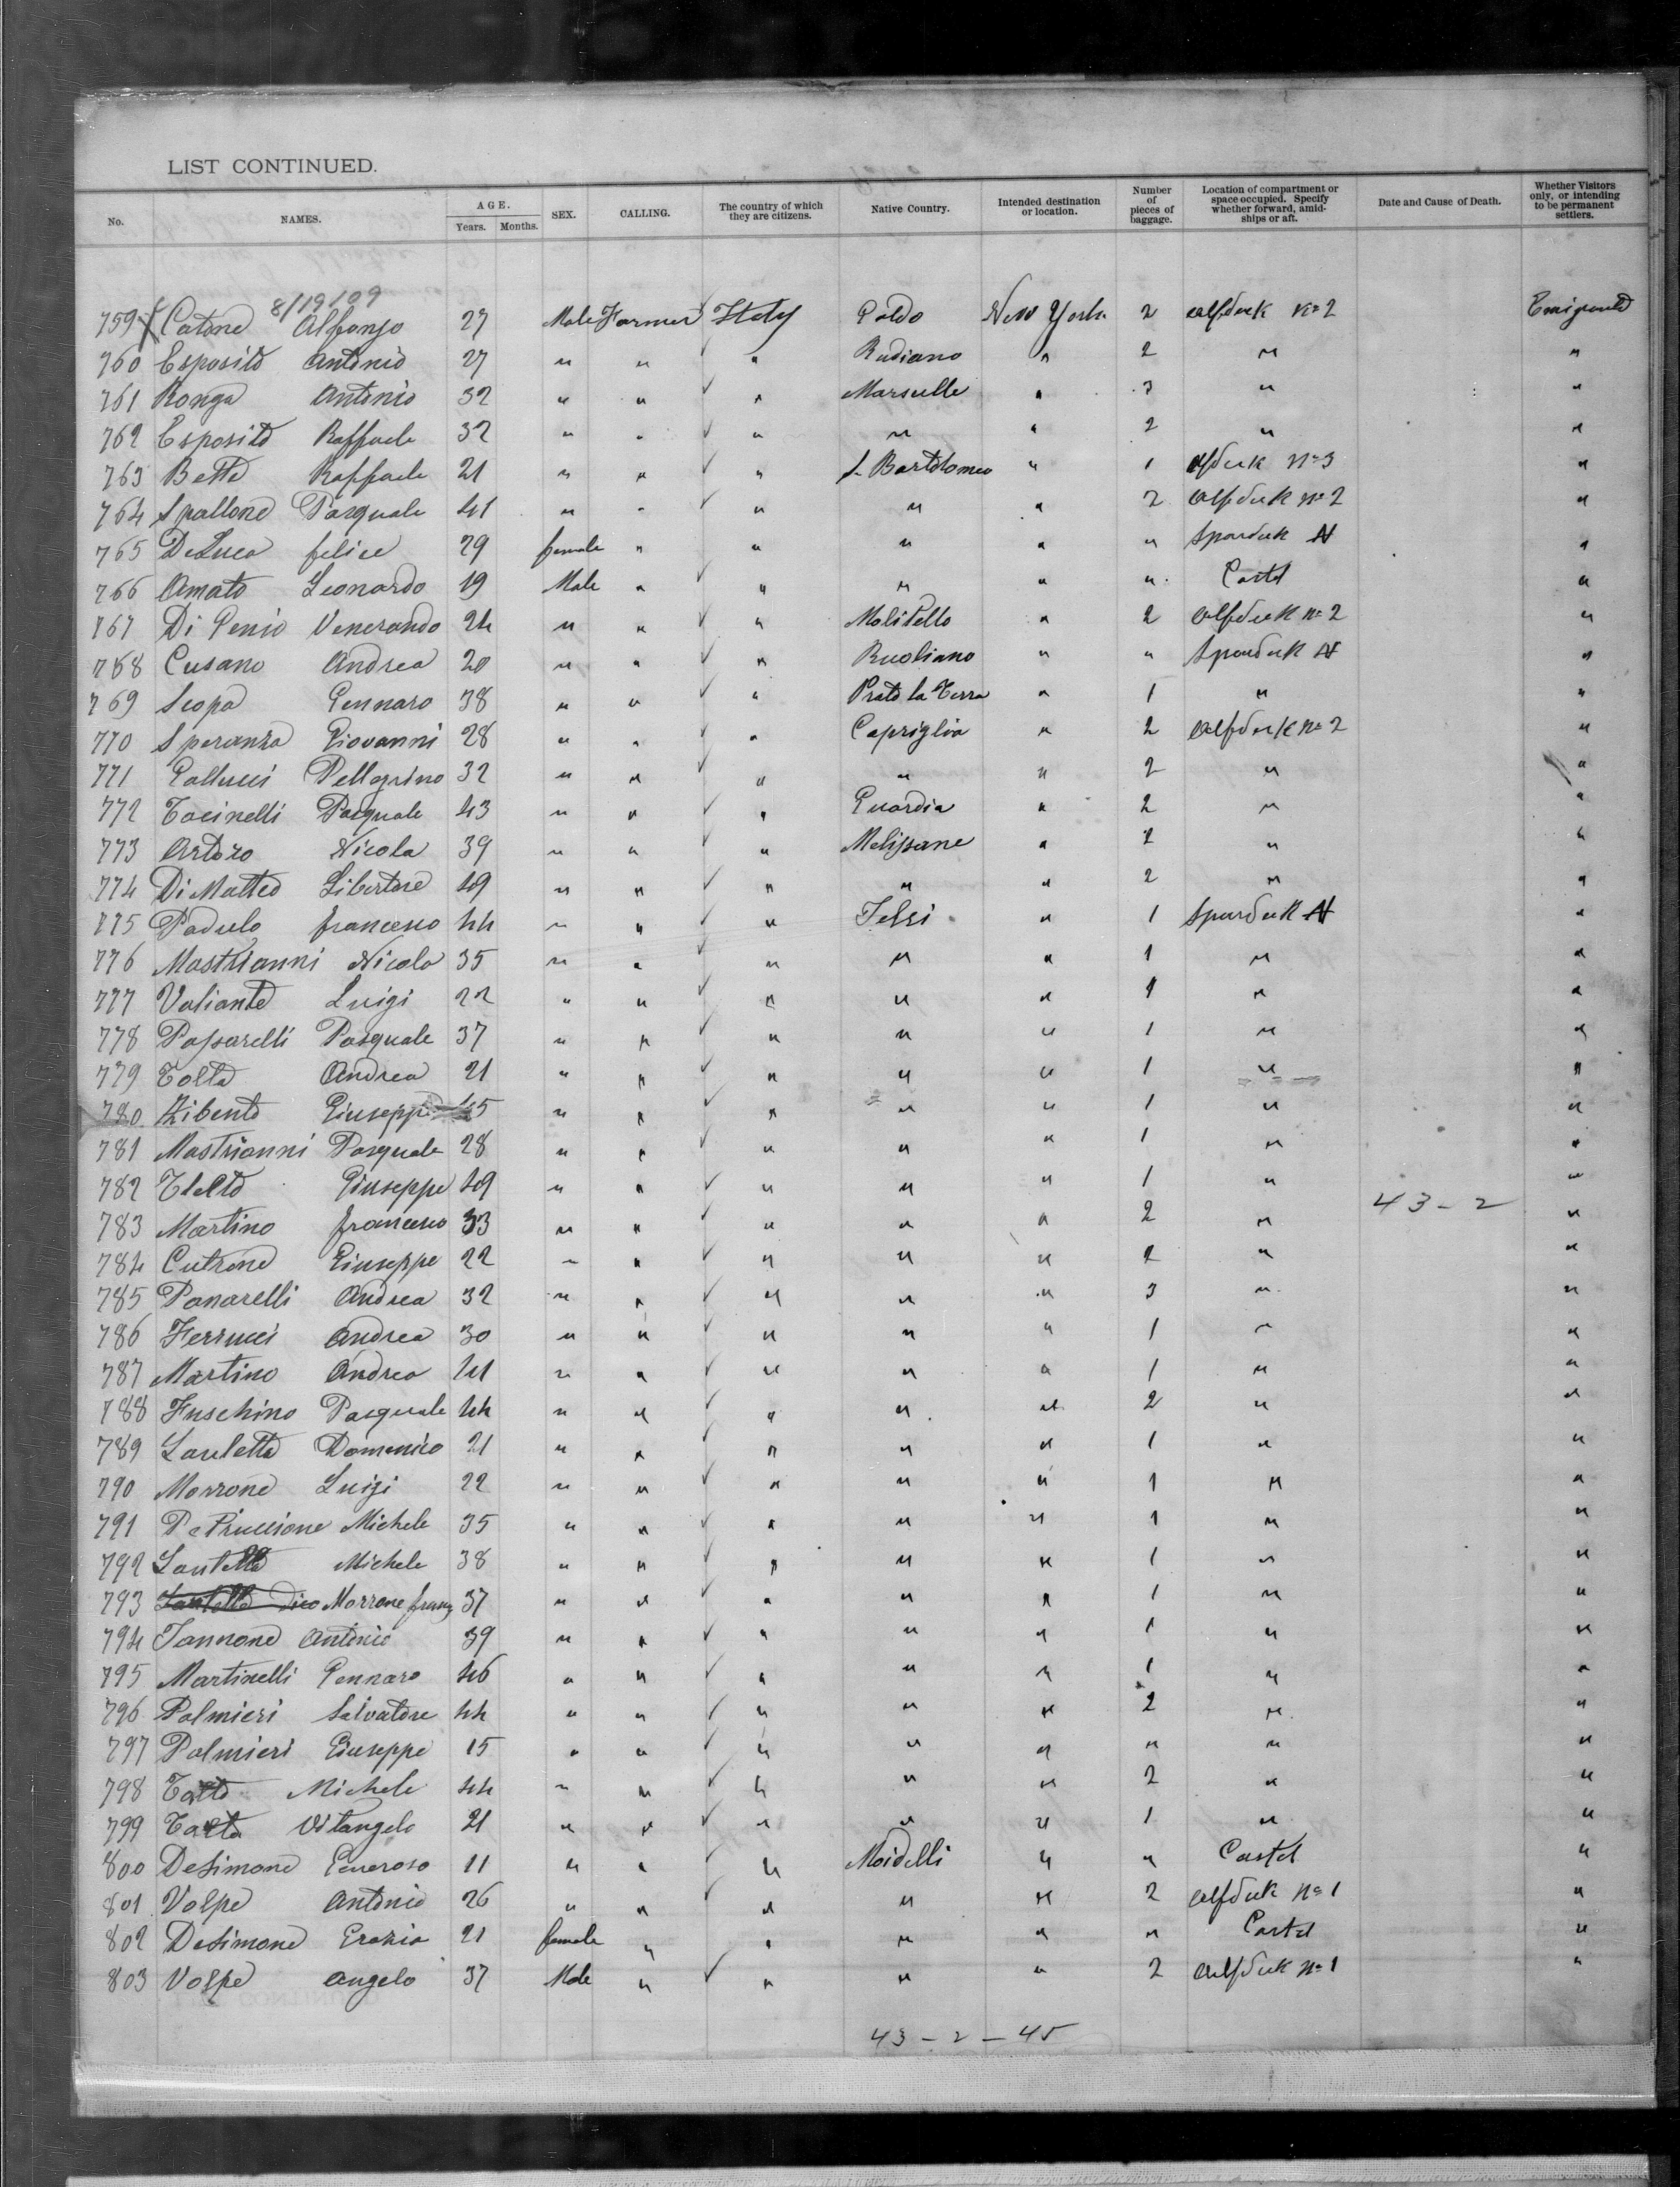 LIST CONTINUED.
No. NAMES. AGE. Years. Months. SEX. CALLING. The country of which they are citizens. Native Country. Intended destination or location. Number of pieces of baggage. Location of compartment or space occupied. Specify whether forward, amidships or aft. Date and Cause of Death. Whether Visitors only, or intending to be permanent settlers.
8/19109
759 Catone Alfonso 27 Male Farmer Italy New York 2 No 2
760 Esposito Antonio 27 " " " Rudiano " 2 " "
761 Ronga Antonio 32 " " " " " "
762 Esposito Raffaele 32 " " " " " 2 " "
763 Raffaele 21 " " " S. Bartolomeo " 1 No 3 "
764 Spallone Pasquale 41 " " " " " 2 No 2 "
765 DeLuca felice 29 female " " " " " "
766 Amato Leonardo 19 Male " " " " " "
767 Di Genio Venerando 24 " " " Molitello " 2 No 2 "
768 Cusano Andrea 20 " " " " " "
769 Scopa Gennaro 38 " " " Prato la Terra " 1 " "
770 Speranza Giovanni 28 " " " Capriglia " 2 No 2 "
771 Gallucci Pellegrino 32 " " " " " 2 " "
772 Tocinelli Pasquale 43 " " " Guardia " 2 " "
773 Nicola 39 " " " Melissane " 2 " "
774 DiMatteo Libertore 49 " " " " " 2 " "
775 Padulo francesco 44 " " " Jelsi " 1 "
776 Mastrianni Nicola 35 " " " " " 1 " "
777 Valiante Luigi 22 " " " " " 1 " "
778 Passarelli Pasquale 37 " " " " " 1 " "
779 Andrea 21 " " " " " 1 " "
780 Giuseppe 45 " " " " " 1 " "
781 Mastrianni Pasquale 28 " " " " " 1 " "
782 Giuseppe 49 " " " " " 1 " "
783 Martino francesco 33 " " " " " 2 " 43-2 "
784 Cutrone Giuseppe 22 " " " " " 2 " "
785 Panarelli Andrea 32 " " " " " 3 " "
786 Ferrucci Andrea 30 " " " " " 1 " "
787 Martino Andrea 41 " " " " " 1 " "
788 Fuschino Pasquale 44 " " " " " 2 " "
789 Domenico 21 " " " " " 1 " "
790 Morrone Luigi 22 " " " " " 1 " "
791 Petruccione Michele 35 " " " " " 1 " "
792 Michele 38 " " " " " 1 " "
793 Morrone 37 " " " " " 1 " "
794 Iannone Antonio 39 " " " " " 1 " "
795 Martinelli Gennaro 46 " " " " " 1 " "
796 Palmieri Salvatore 44 " " " " " 2 " "
797 Palmieri Giuseppe 15 " " " " " " " "
798 Michele 44 " " " " " 2 " "
799 Vitangelo 21 " " " " " 1 " "
800 DeSimone Generoso 11 " " " " " "
801 Volpe Antonio 26 " " " " " 2 No 1 "
802 DeSimone Grazia 21 female " " " " " "
803 Volpe Angelo 37 Male " " " " 2 No 1 "
43 - 2 - 45